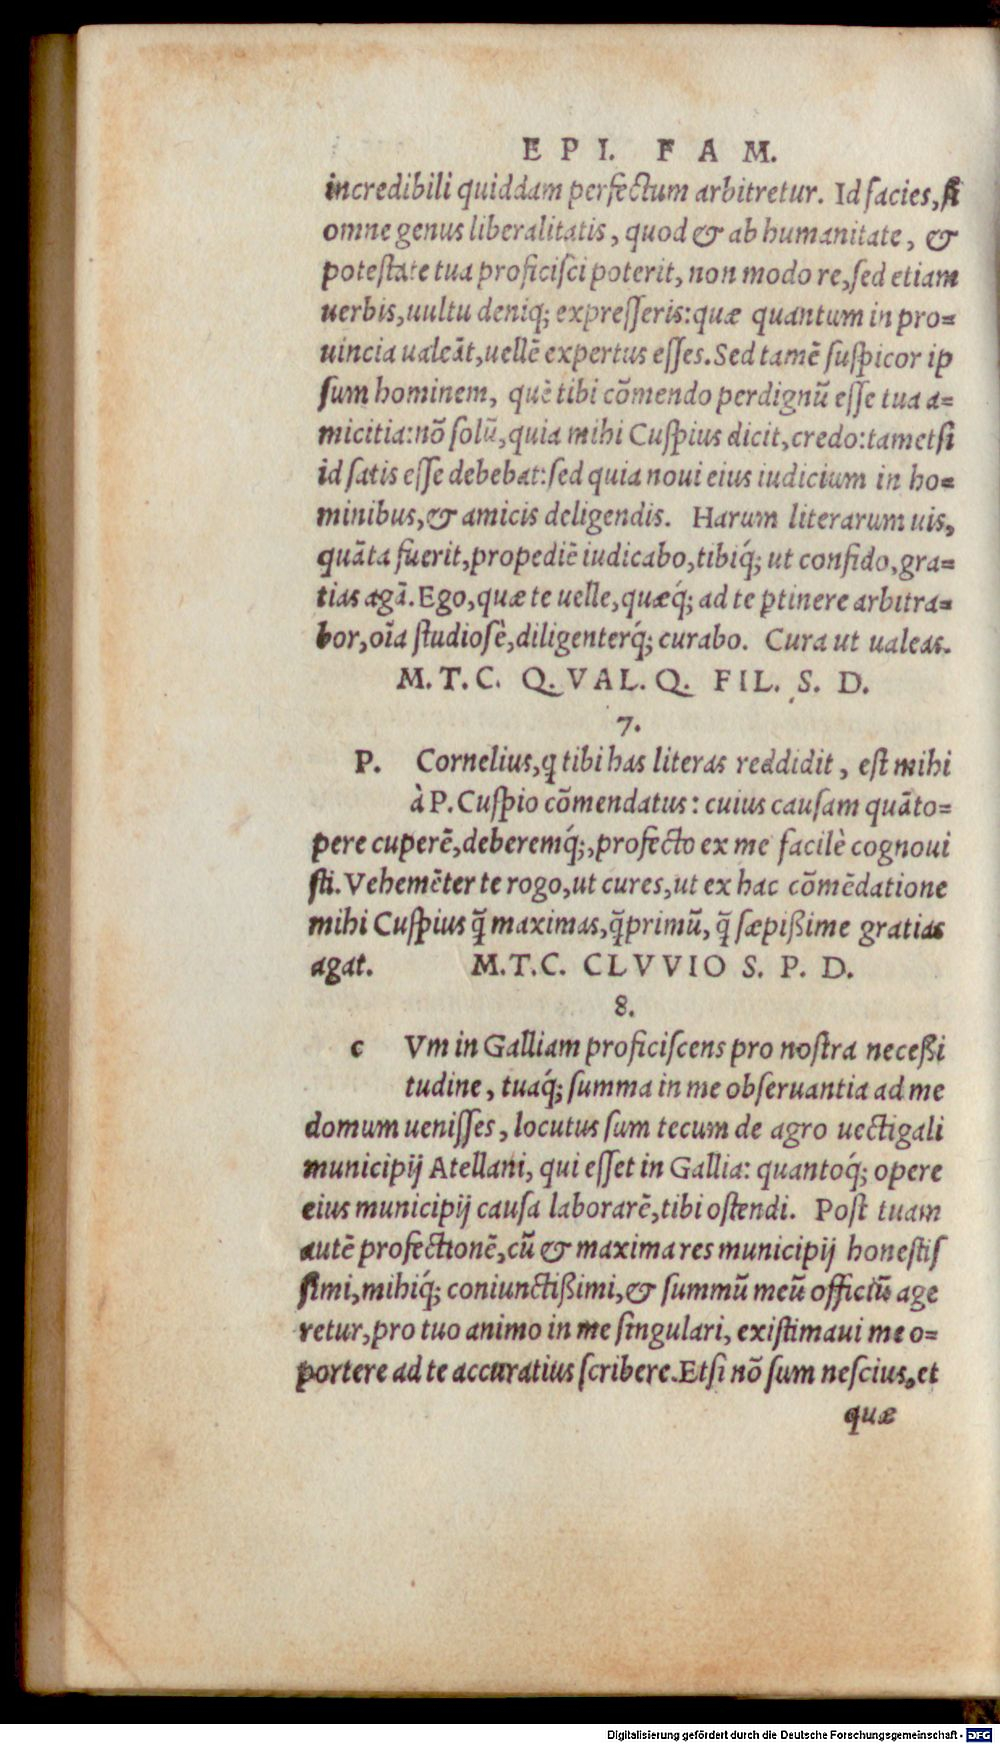 E P I. F A M.
incredibili quiddam perfectum arbitretur. Id facies, si
omne genus liberalitatis, quod & ab humanitate, &
potestate tua proficisci poterit, non modo re, sed etiam
uerbis, uultu deniq; expresseris: quæ quantum in pro=
uincia ualeāt, uellē expertus esses. Sed tamē suspicor ip
sum hominem, quē tibi cōmendo perdignū esse tua a=
micitia: nō solū, quia mihi Cuspius dicit, credo: tametsi
id satis esse debebat: sed quia noui eius iudicium in ho=
minibus, & amicis deligendis. Harum literarum uis,
quāta fuerit, propediē iudicabo, tibiq́; ut confido, gra=
tias agā. Ego, quæ te uelle, quæq́; ad te ꝑtinere arbitra=
bor, oīa studiosè, diligenterq́; curabo. Cura ut ualeas.
M. T. C. Q. VAL. Q. FIL. S. D.
7.
P. Cornelius, q tibi has literas reddidit, est mihi
à P. Cuspio cōmendatus: cuius causam quāto=
pere cuperē, deberemq́;, profecto ex me facilè cognoui
sti. Vehemēter te rogo, ut cures, ut ex hac cōmēdatione
mihi Cuspius q̄ maximas, q̄primū, q̄ sæpißime gratias
agat. M. T. C. CLVVIO S. P. D.
8.
c Vm in Galliam proficiscens pro nostra neceßi
tudine, tuaq́; summa in me obseruantia ad me
domum uenisses, locutus sum tecum de agro uectigali
municipij Atellani, qui esset in Gallia: quantoq́; opere
eius municipij causa laborarē, tibi ostendi. Post tuam
autē profectionē, cū & maxima res municipij honestis
simi, mihiq́; coniunctißimi, & summū meū officiū age
retur, pro tuo animo in me singulari, existimaui me o=
portere ad te accuratius scribere. Etsi nō sum nescius, et
quæ
Digitalisierung gefördert durch die Deutsche Forschungsgemeinschaft - DFG